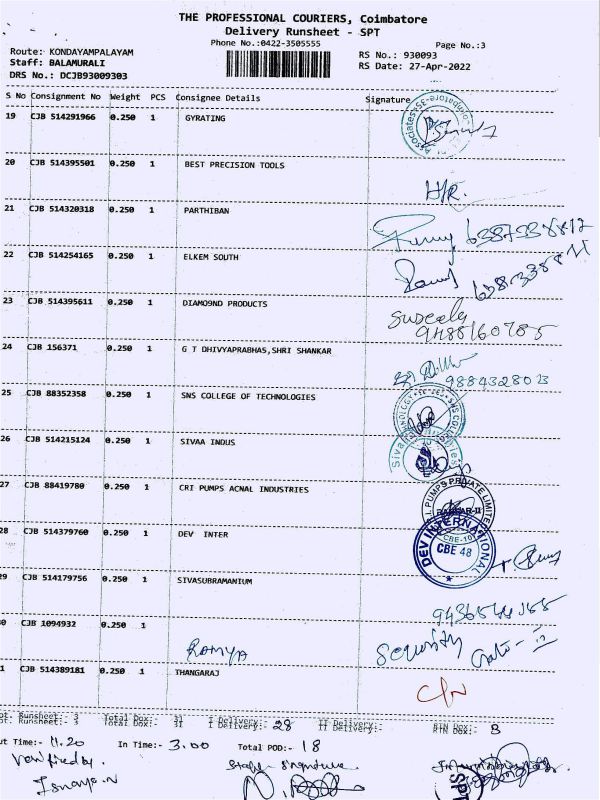 THE PROFESSIONAL COURIERS, Coimbatore
Delivery Runsheet - SPT
Phone No.:0422-3505555
Page No.:3
Route: KONDAYAMPALAYAM
Staff: BALAMURALI
DRS No.: DCJB93009303
RS No.: 930093
RS Date: 27-Apr-2022
S No Consignment No Weight PCS Consignee Details Signature
19 CJB 514291966 0.250 1 GYRATING
20 CJB 514395501 0.250 1 BEST PRECISION TOOLS
H/R.
21 CJB 514320318 0.250 1 PARTHIBAN
22 CJB 514254165 0.250 1 ELKEM SOUTH
23 CJB 514395611 0.250 1 DIAMO9ND PRODUCTS
24 CJB 156371 0.250 1 G T DHIVYAPRABHAS,SHRI SHANKAR
25 CJB 88352358 0.250 1 SNS COLLEGE OF TECHNOLOGIES
26 CJB 514215124 0.250 1 SIVAA INDUS
27 CJB 88419780 0.250 1 CRI PUMPS ACNAL INDUSTRIES
PUMPS PRIVATE LIMITED
28 CJB 514379760 0.250 1 DEV INTER
DEV INTERNATIONAL
CBE 48
29 CJB 514179756 0.250 1 SIVASUBRAMANIUM
0 CJB 1094932 0.250 1
Ramya Security Gate - II
1 CJB 514389181 0.250 1 THANGARAJ
Runsheet:- 3 Total Dox:- 31 I Delivery:- 28 II Delivery:- RTN Dox:- 3
ut Time:- 11.20 In Time:- 3.00 Total POD:- 18
Verified by. Staff Signature
SPT